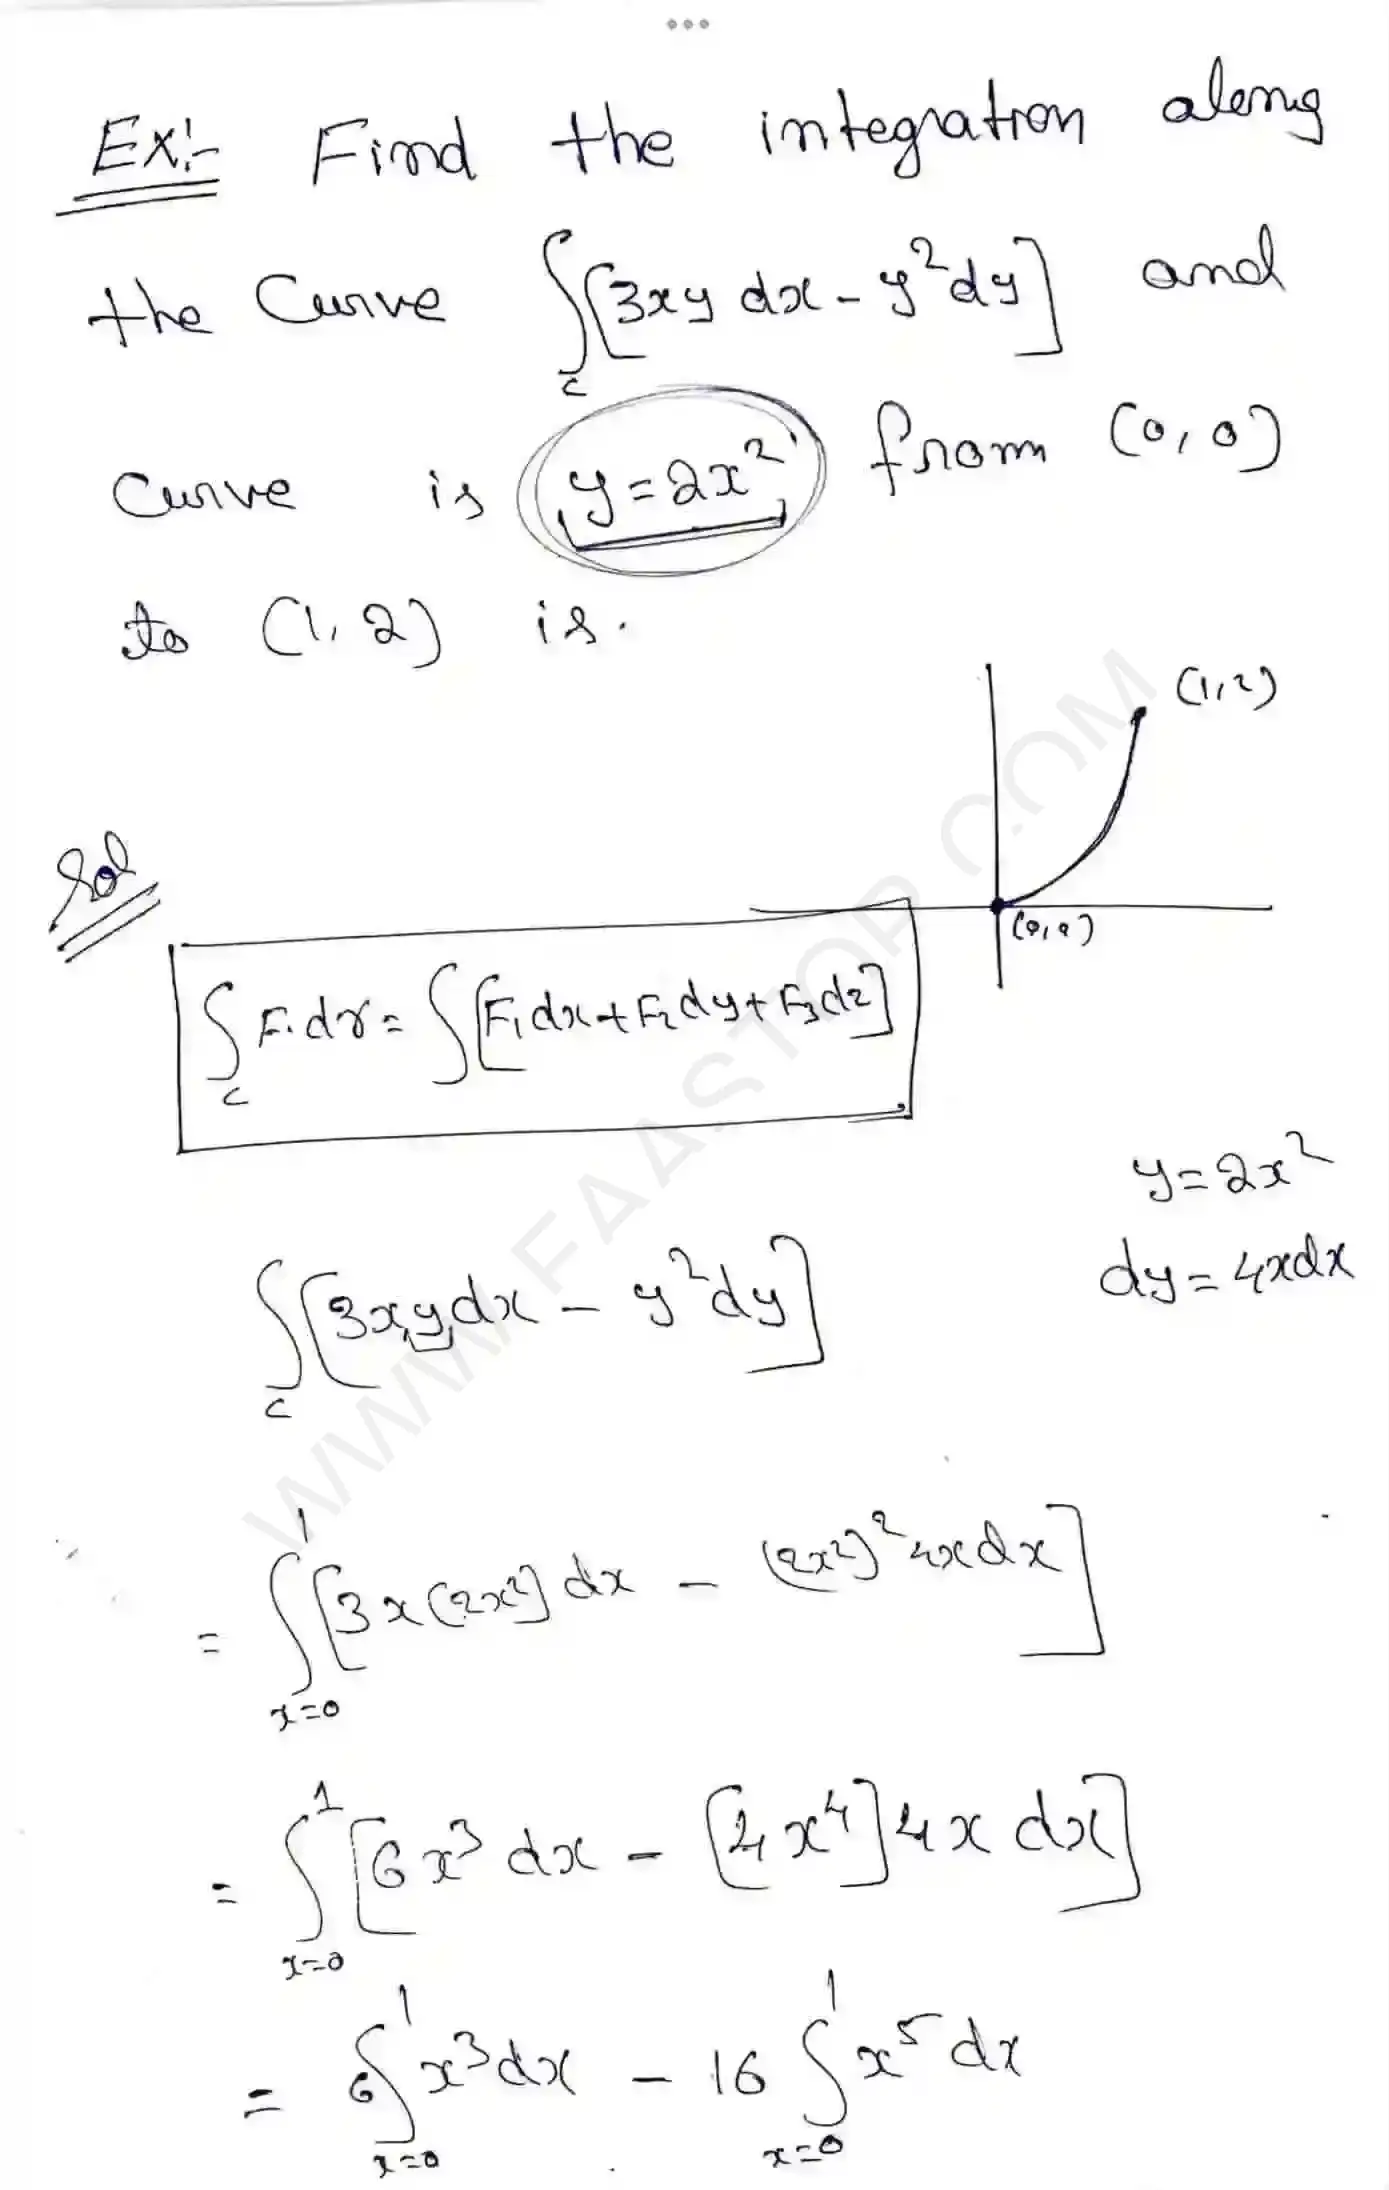 Ex:- Find the integration along
the Curve ∫c [3xy dx - y²dy] and
Curve is y = 2x² from (0,0)
to (1,2) is.
(1,2)
Sol
(0,0)
∫c F.dr = ∫[F₁dx + F₂dy + F₃dz]
y = 2x²
dy = 4xdx
∫c [3xydx - y²dy]
= ∫x=0 1 [3x(2x²)dx - (2x²)² 4xdx]
= ∫x=0 1 [6x³dx - [4x⁴]4x dx]
= 6∫x=0 1 x³dx - 16 ∫x=0 1 x⁵dx
WWW.FAASTOP.COM